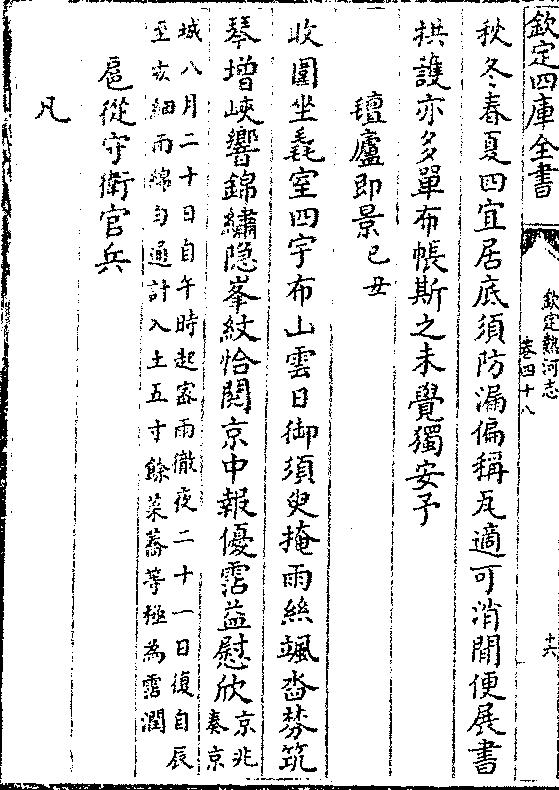 欽定四庫全書
欽定熱河志
卷四十八
十六
秋冬春夏四宜居底須防漏偏稱瓦適可消閒便展書
拱護亦多單布帳斯之未覺獨安予
氊廬即景己丑
收圍坐毳室四宇布山雲日御須臾掩雨絲颯沓棼筑
琴增峽響錦繡隱峯紋恰閱京中報優霑益慰欣
京兆
奏京
城八月二十日自午時起密雨徹夜二十一日復自辰
至亥細雨綿勻通計入土五寸餘菜蕎等極為霑潤
扈從守衛官兵
凡